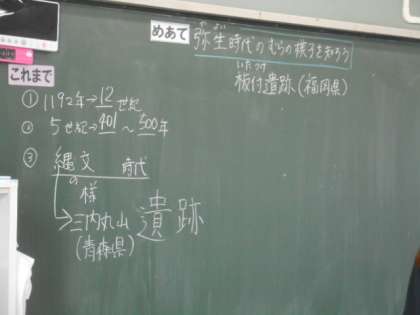 めあて
やよい
弥生時代のむらの様子を知ろう
いたつけ
板付遺跡(福岡県)
これまで
① 1192年→12世紀
② 5世紀→401～500年
③ 縄文時代
の
様
→三内丸山遺跡
(青森県)